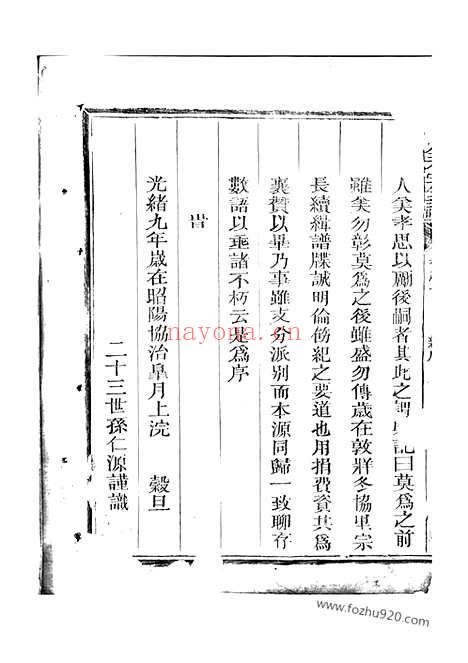 人矣孝思以勵後嗣者其此之謂歟記曰莫爲之前
雖美勿彰莫爲之後雖盛勿傳歲在敦牂冬協里宗
長續緝譜牒誠明倫飭紀之要道也用捐費資共爲
襄贊以畢乃事雖支分派別而本源同歸一致聊存
數語以垂諸不朽云是爲序
旹
光緒九年歲在昭陽協洽臯月上浣 穀旦
二十三世孫仁源謹識
nayona.cn
www.fozhu920.com